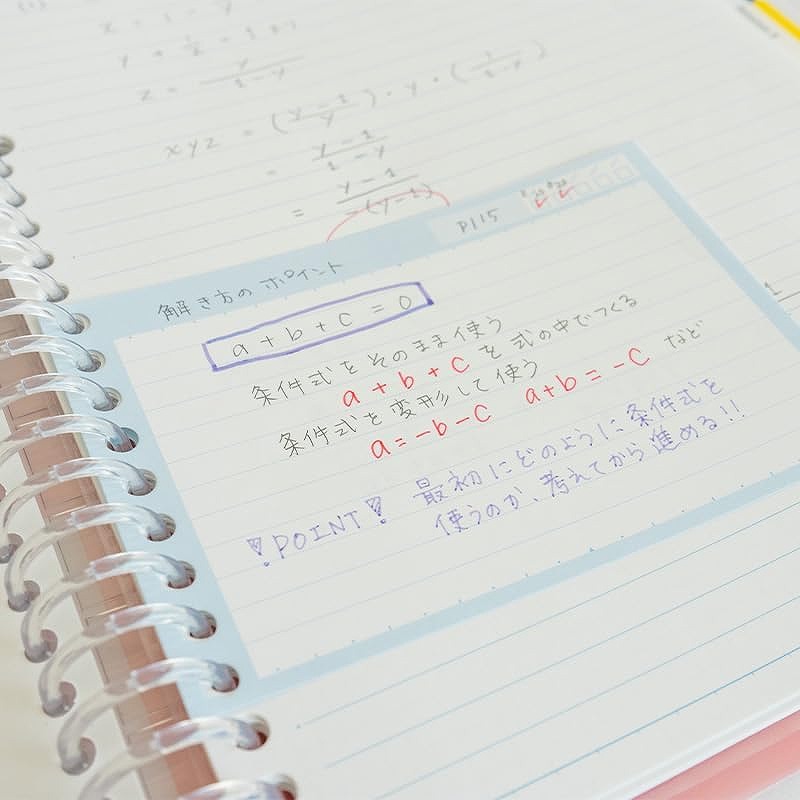 (1)
x = 1 -
z = y/(1-y)
xyz = ((y-1)/y)・y・(1/(1-y))
= (y-1)/(1-y)
= (y-1)/-(y-1)
P115
解き方のポイント
a + b + c = 0
条件式をそのまま使う
a + b + c を式の中でつくる
条件式を変形して使う
a = -b-c a+b = -c など
POINT! 最初にどのように条件式を
使うのか、考えてから進める!!